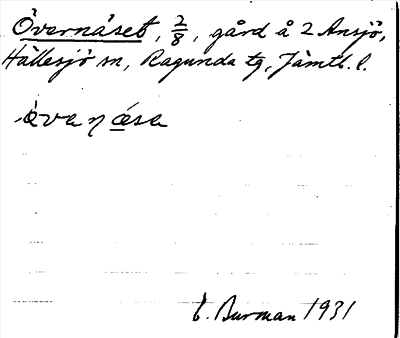 Övernäset, 2/8, gård å 2 Ansjö,
Hällesjö sn, Ragunda tg, Jämtl. l.
E. Burman 1931